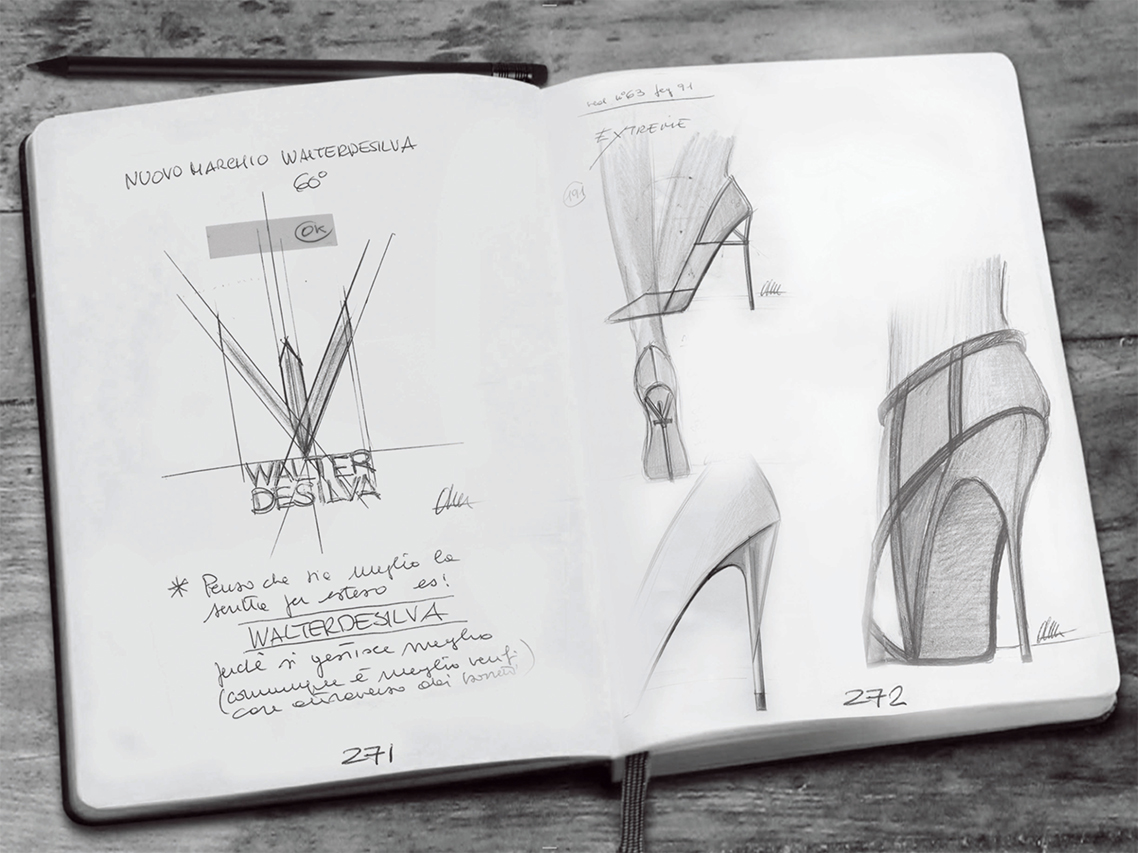 NUOVO MARCHIO WALTERDESILVA
66°
OK
WALTER
DESILVA
* Penso che sia meglio la
scritta per esteso es!
WALTERDESILVA
perchè si gestisce meglio
(comunque è meglio verifi-
care attraverso dei bozzetti)
271
ved n°63 pag 91
EXTREME
191
272